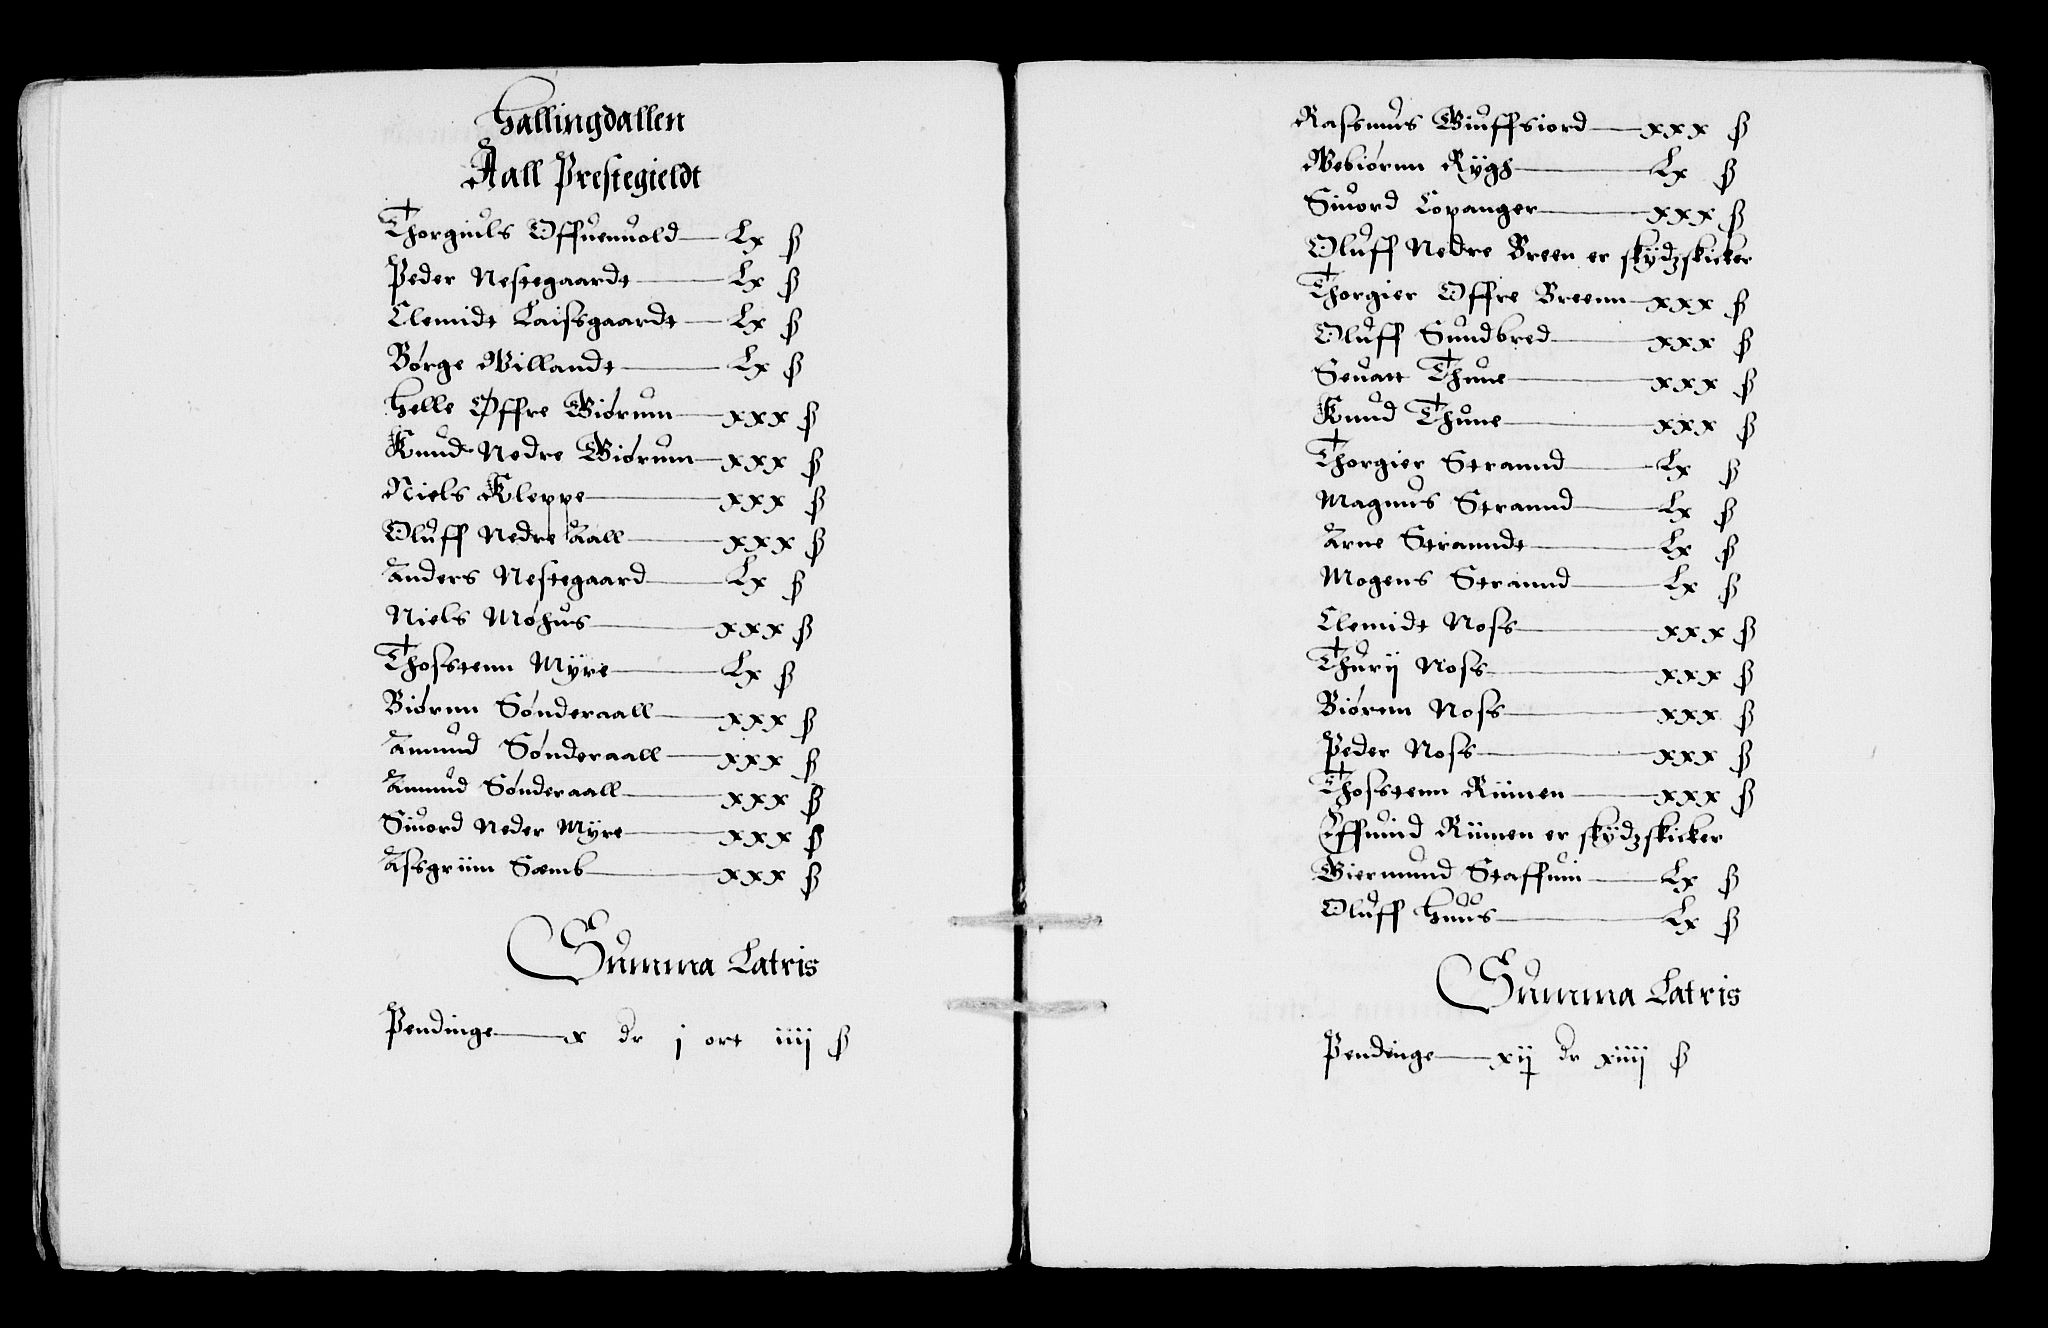 Hallingdallen
Aall Prestegieldt
Thorgiuls Offuenuold — Lx ß
Peder Nestegaardt — Lx ß
Clemidt Laissgaardt — Lx ß
Børge Willandt — Lx ß
Helle Øffre Biørnn — xxx ß
Knud Nedre Biørnn — xxx ß
Niels Kleppe — xxx ß
Oluff Nedre Aall — xxx ß
Anders Nestegaard — Lx ß
Niels Møhus — xxx ß
Thosstenn Myre — Lx ß
Biørnn Sønderaall — xxx ß
Amund Sønderaall — xxx ß
Amund Sønderaall — xxx ß
Siuord Neder Myre — xxx ß
Assgrim Sæmb — xxx ß
Summa Latris
Pendinge — x dr j ort iiij ß
Rassmus Biuffsiord — xxx ß
Webiørnn Rygh — Lx ß
Siuord Lopanger — xxx ß
Oluff Nedre Breen er skydzskicker
Thorgier Offre Breenn — xxx ß
Oluff Sundbred — xxx ß
Seuatt Thune — xxx ß
Knud Thune — xxx ß
Thorgier Strannd — Lx ß
Magnus Strannd — Lx ß
Arne Stranndt — Lx ß
Mogens Strannd — Lx ß
Clemidt Noss — xxx ß
Thurij Noss — xxx ß
Biørnn Noss — xxx ß
Peder Noss — xxx ß
Thosstenn Riimen — xxx ß
Effuind Riimen er skydzskicker
Giermund Staffuin — Lx ß
Oluff Huus — Lx ß
Summa Latris
Pendinge — xij dr xiiij ß